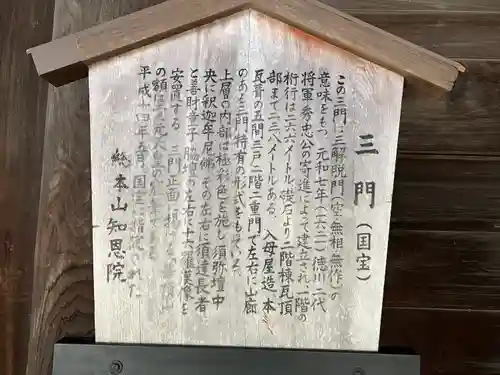 三門(国宝)
この三門は三解脱門(空・無相・無作)の
意味をもつ。元和七年(一六二一)徳川二代
将軍秀忠公の寄進によって建立され一階の
桁行は二六・六メートル礎石より二階棟瓦頂
部まで二三・八メートルある。入母屋造本
瓦葺の五間三戸二階二重門で左右に山廊
のある三門特有の形式をもっている。
上層の内部は極彩色を施し須弥壇中
央に釈迦牟尼佛、その左右に須達長者
と善財童子、脇壇の左右に十六羅漢像を
安置する。三門正面に掲げる
の額は
平成十四年五月国宝に指定された
総本山知恩院